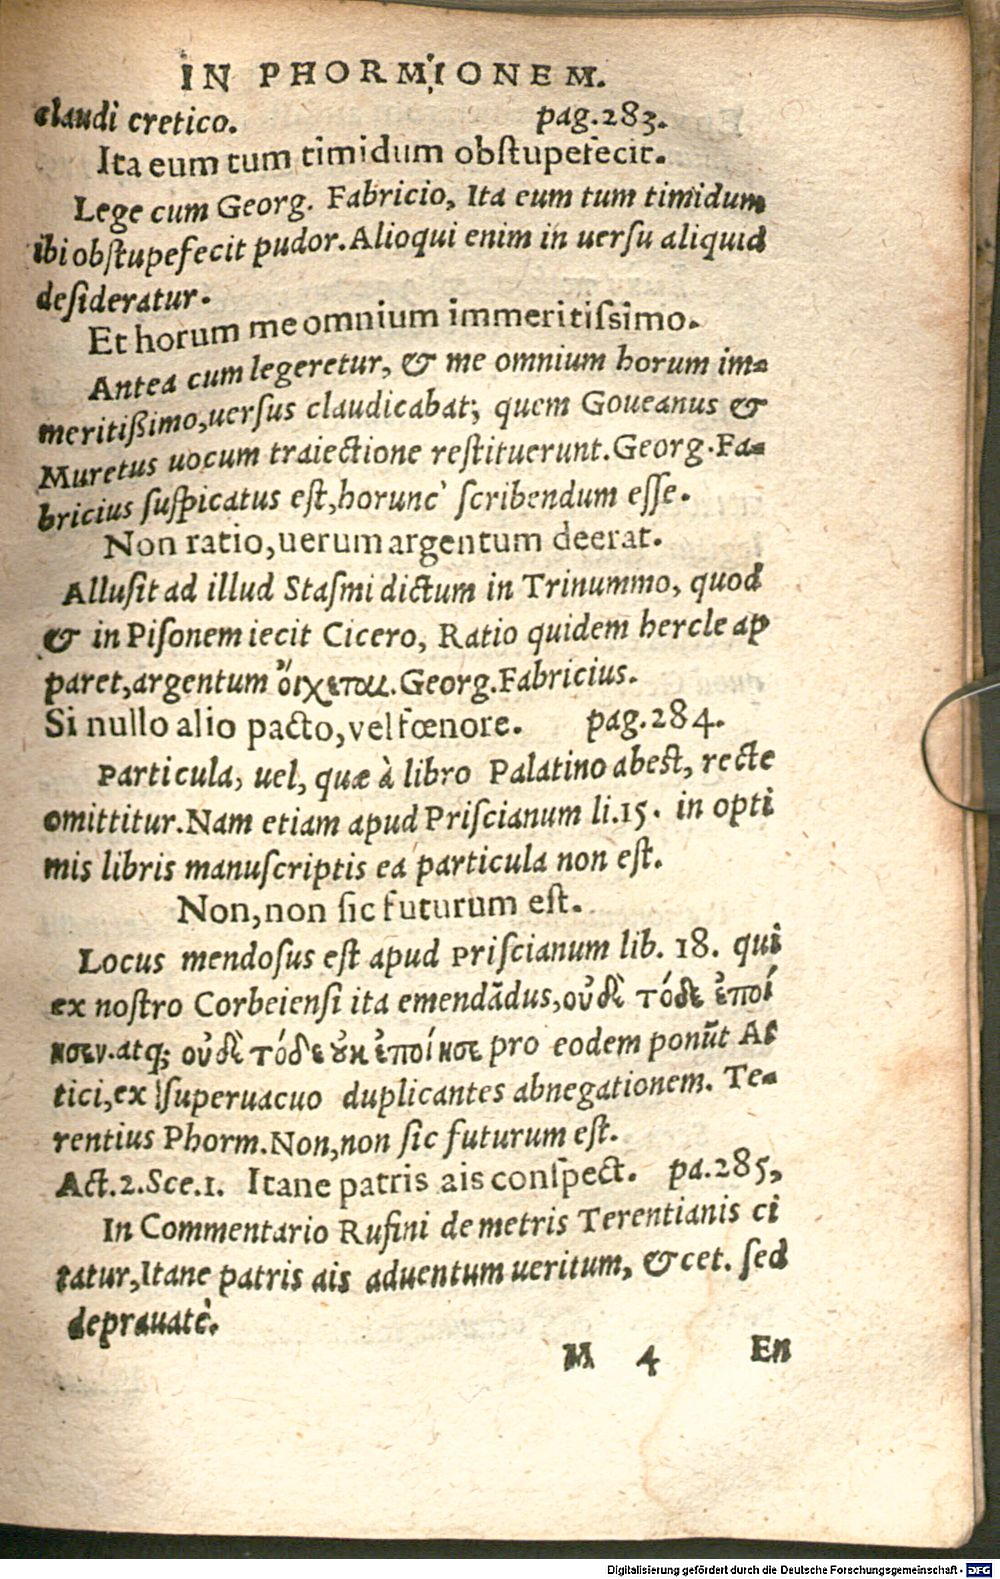 IN PHORMIONEM.
claudi cretico. pag.283.
Ita eum tum timidum obſtupefecit.
Lege cum Georg. Fabricio, Ita eum tum timidum
ibi obſtupefecit pudor. Alioqui enim in uerſu aliquid
deſideratur.
Et horum me omnium immeritiſsimo.
Antea cum legeretur, & me omnium horum im-
meritißimo, uerſus claudicabat; quem Goueanus &
Muretus uocum traiectione reſtituerunt. Georg. Fa-
bricius ſuſpicatus eſt, horunc' ſcribendum eſſe.
Non ratio, uerum argentum deerat.
Alluſit ad illud Staſmi dictum in Trinummo, quod
& in Piſonem iecit Cicero, Ratio quidem hercle ap
paret, argentum ὄιχεται. Georg. Fabricius.
Si nullo alio pacto, vel fœnore. pag.284.
Particula, uel, quæ à libro Palatino abeſt, recte
omittitur. Nam etiam apud Priſcianum li.15. in opti
mis libris manuſcriptis ea particula non eſt.
Non, non ſic futurum eſt.
Locus mendosus eſt apud Priſcianum lib. 18. qui
ex noſtro Corbeienſi ita emendãdus, οὐδὲ τόδε ἐποί
ησεν. atq; οὐδὲ τόδε ȣκ ἐποίησε pro eodem ponũt At
tici, ex ſuperuacuo duplicantes abnegationem. Te-
rentius Phorm. Non, non ſic futurum eſt.
Act.2. Sce.1. Itane patris ais conſpect. pa.285,
In Commentario Rufini de metris Terentianis ci
tatur, Itane patris ais aduentum ueritum, & cet. ſed
deprauatè.
M 4 En
Digitalisierung gefördert durch die Deutsche Forschungsgemeinschaft - DFG